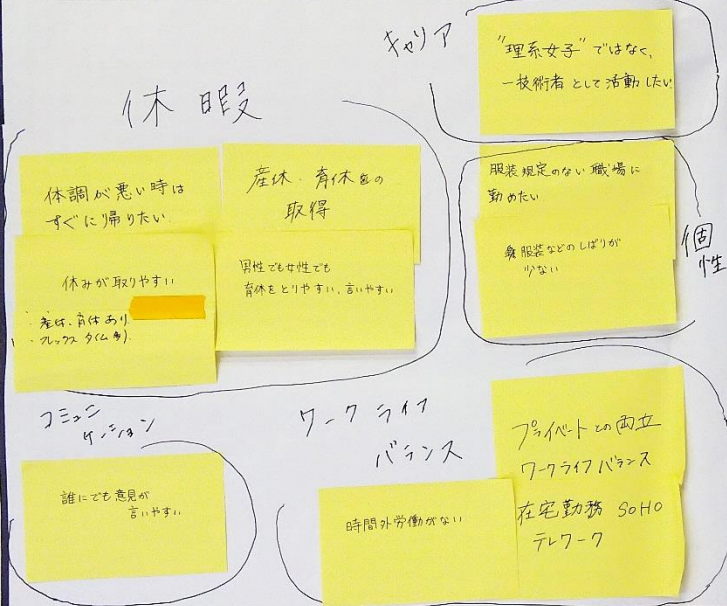 キャリア
"理系女子"ではなく、
一技術者として活動したい
休暇
体調が悪い時は
すぐに帰りたい
産休、育休の
取得
休みが取りやすい
・産休、育休あり
・フレックスタイム
男性でも女性でも
育休をとりやすい、言いやすい
服装規定のない職場に
勤めたい
服装などのしばりが
少ない
個性
コミュニ
ケーション
誰にでも意見が
言いやすい
ワークライフ
バランス
プライベートとの両立
ワークライフバランス
時間外労働がない
在宅勤務 SOHO
テレワーク